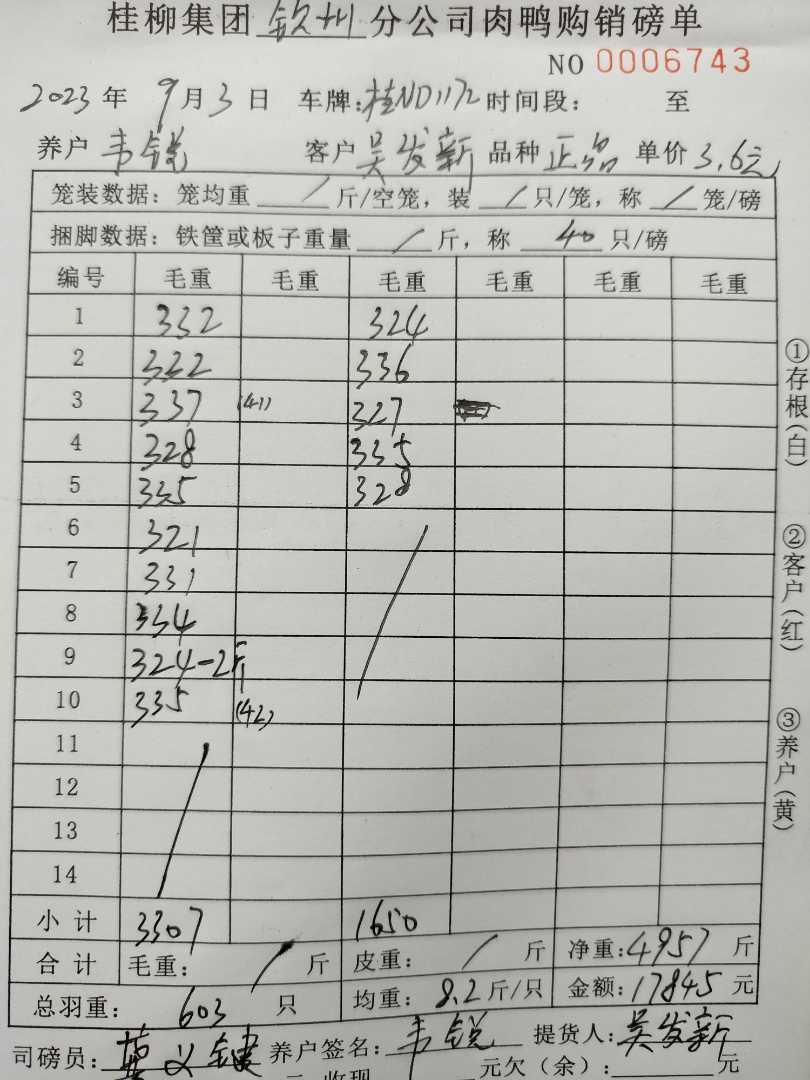 桂柳集团 钦州 分公司肉鸭购销磅单
NO 0006743
2023 年 9 月 3 日 车牌:桂ND1172 时间段: 至
养户 韦锐 客户 吴发新 品种 正品 单价 3.6元
笼装数据: 笼均重 / 斤/空笼, 装 / 只/笼, 称 / 笼/磅
捆脚数据: 铁筐或板子重量 / 斤, 称 40 只/磅
编号 毛重 毛重 毛重 毛重 毛重 毛重
1 332 324
2 332 336
3 337 (41) 327
4 328 335
5 335 328
6 321
7 331
8 334
9 324-2斤
10 335 (42)
11
12
13
14
小计 3307 1650
合计 毛重: / 斤 皮重: / 斤 净重:4957 斤
总羽重: 603 只 均重: 8.2 斤/只 金额:17845 元
司磅员: 义键 养户签名: 韦锐 提货人: 吴发新
元欠(余): 元
①存根(白)
②客户(红)
③养户(黄)